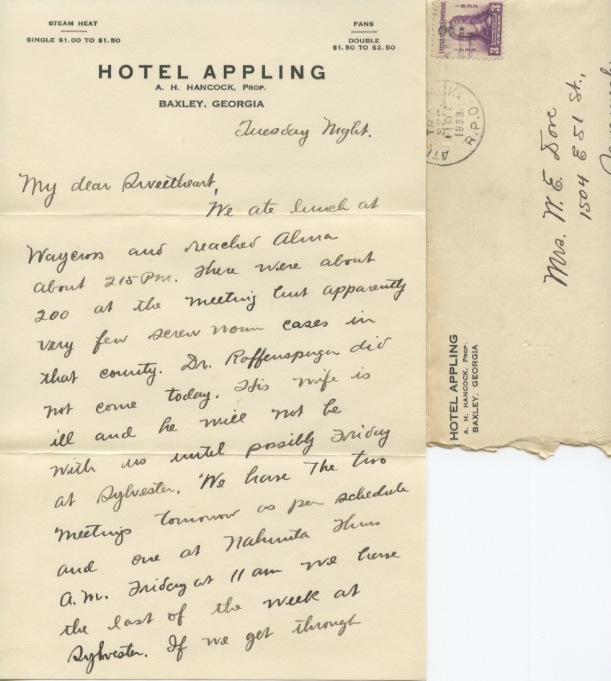 STEAM HEAT
SINGLE $1.00 TO $1.50
FANS
DOUBLE
$1.50 TO $2.50
HOTEL APPLING
A. H. HANCOCK, PROP.
BAXLEY, GEORGIA
Tuesday Night.
My dear Sweetheart,
We ate lunch at
Waycross and reached Alma
about 215 PM. There were about
200 at the meeting but apparently
very few screw worm cases in
that county. Dr. Raffensperger did
not come today. His wife is
ill and he will not be
with us until possibly Friday
at Sylvester. We have the two
meetings tomorrow as per schedule
and one at Nahunta Thurs
A.M. Friday at 11 am we have
the last of the week at
Sylvester. If we get through
3
1933
R.P.O.
Mrs. W. E. Dove
1504 E 51 St.,
HOTEL APPLING
A. H. HANCOCK, PROP.
BAXLEY, GEORGIA